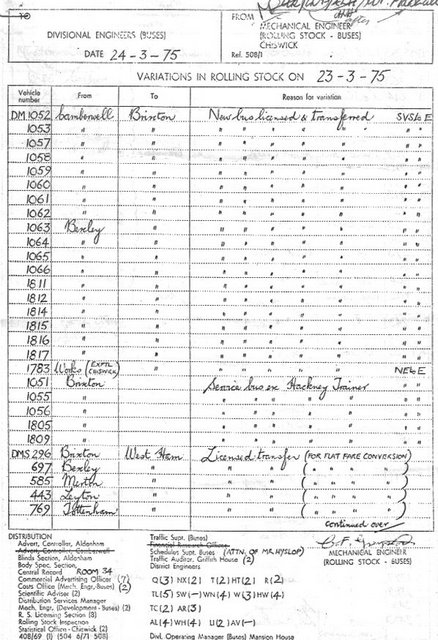 TO
FROM
MECHANICAL ENGINEER
DIVISIONAL ENGINEERS (BUSES)
(ROLLING STOCK - BUSES)
CHISWICK
DATE 24-3-75
Ref. 508/1
VARIATIONS IN ROLLING STOCK ON 23-3-75
Vehicle number From To Reason for variation
DM 1052 Camberwell Brixton New bus licensed & transferred SVSLo E
1053 " " " " " " " " "
1057 " " " " " " " " "
1058 " " " " " " " " "
1059 " " " " " " " " "
1060 " " " " " " " " "
1061 " " " " " " " " "
1062 " " " " " " " " "
1063 Bexley " " " " " " " "
1064 " " " " " " " " "
1065 " " " " " " " " "
1066 " " " " " " " " "
1811 " " " " " " " " "
1812 " " " " " " " " "
1814 " " " " " " " " "
1815 " " " " " " " " "
1816 " " " " " " " " "
1817 " " " " " " " " "
1783 Works (EXPTL CHISWICK) " " " " " " NELo E
1051 Brixton Service bus ex Hackney Trainer
1055 " " " " " "
1056 " " " " " "
1805 " " " " " "
1809 " " " " " "
DMS 296 Brixton West Ham Licensed transfer (FOR FLAT FARE CONVERSION)
697 Bexley " " " ( " " " )
585 Merton " " " ( " " " )
443 Leyton " " " ( " " " )
769 Tottenham " " " ( " " " )
continued over
DISTRIBUTION
Advert. Controller, Aldenham
Advert. Controller, Camberwell
Blinds Section, Aldenham
Body Spec. Section,
Central Record ROOM 34
Commercial Advertising Officer (7)
Costs Office (Mech. Engr, Buses) (2)
Scientific Adviser (2)
Distribution Services Manager
Mech. Engr, (Development - Buses) (2)
R. S. Licensing Section (8)
Rolling Stock Inspection
Statistical Office - Chiswick (2)
408/69 (1) (504 6/71 508)
Traffic Supt. (Buses)
Financial Research Officer
Schedules Supt. Buses (ATTN. OF MR. HYSLOP)
Traffic Auditor, Griffith House (2)
District Engineers
Q(3) NX(2) T(2) HT(2) R(2)
TL(5) SW(-) WN(4) W(3) HW(4)
TC(2) AR(3)
AL(4) WH(4) U(2) AV(-)
Divl. Operating Manager (Buses) Mansion House
MECHANICAL ENGINEER
(ROLLING STOCK - BUSES)